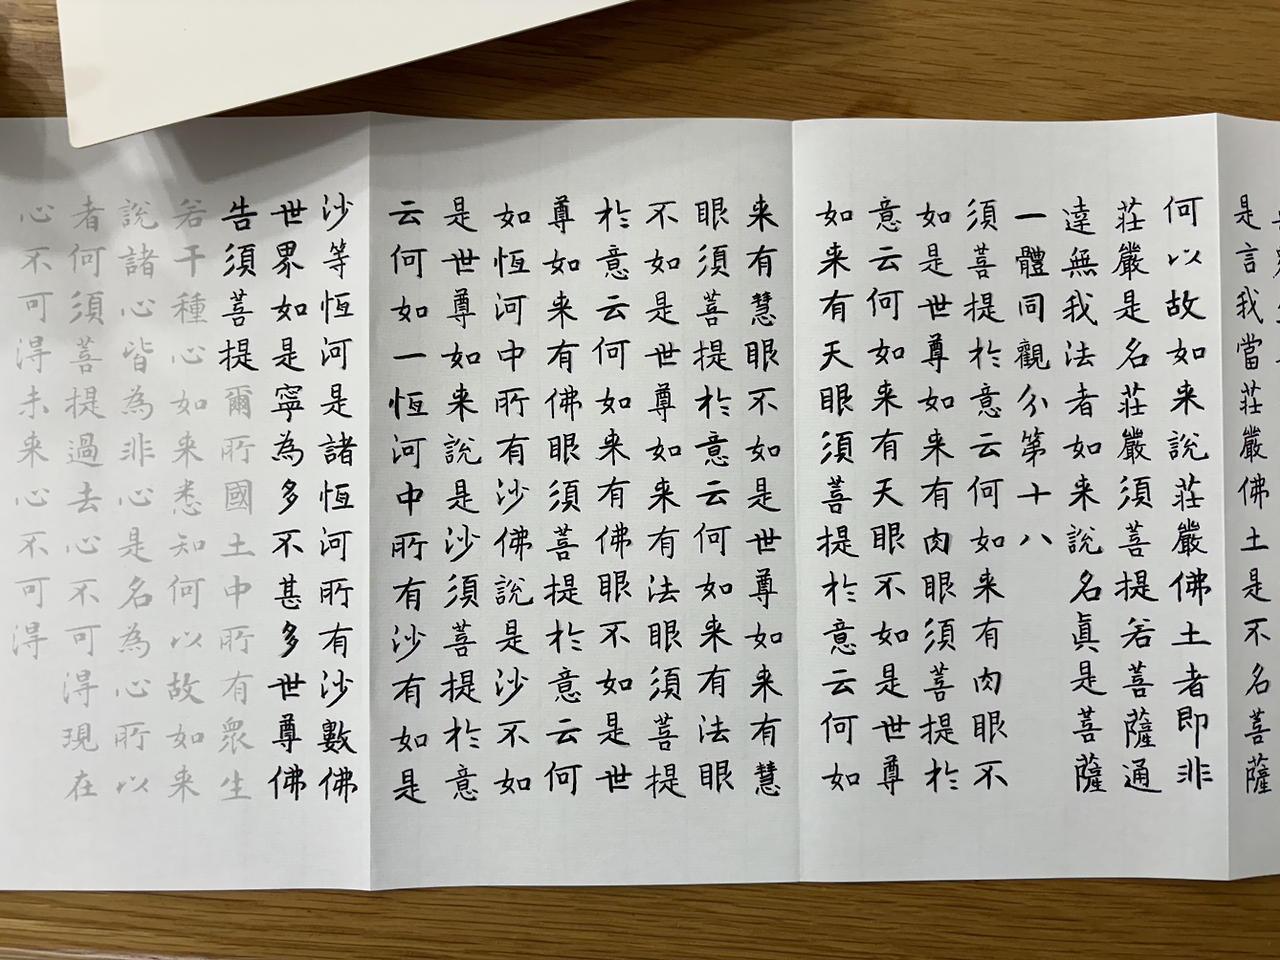 是言我當莊嚴佛土是不名菩薩
何以故如来說莊嚴佛土者即非
莊嚴是名莊嚴須菩提若菩薩通
達無我法者如来說名真是菩薩
一體同觀分第十八
須菩提於意云何如来有肉眼不
如是世尊如来有肉眼須菩提於
意云何如来有天眼不如是世尊
如来有天眼須菩提於意云何如
来有慧眼不如是世尊如来有慧
眼須菩提於意云何如来有法眼
不如是世尊如来有法眼須菩提
於意云何如来有佛眼不如是世
尊如来有佛眼須菩提於意云何
如恆河中所有沙佛說是沙不如
是世尊如来說是沙須菩提於意
云何如一恆河中所有沙有如是
沙等恆河是諸恆河所有沙數佛
世界如是寧為多不甚多世尊佛
告須菩提爾所國土中所有眾生
若干種心如来悉知何以故如来
說諸心皆為非心是名為心所以
者何須菩提過去心不可得現在
心不可得未来心不可得